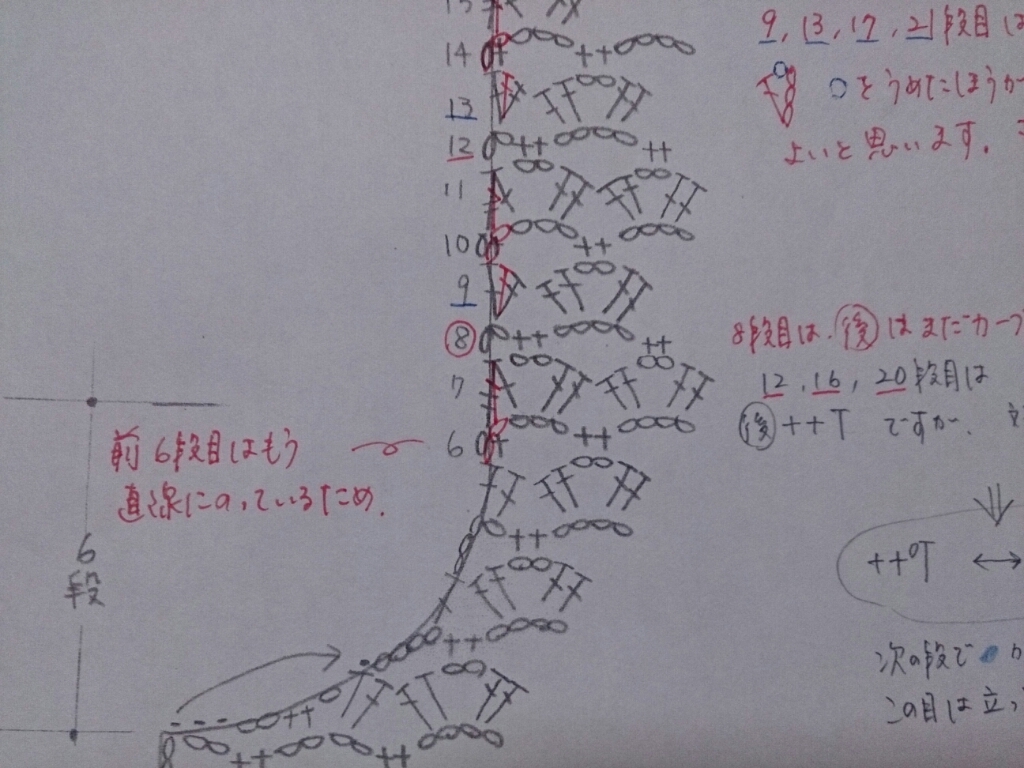 14
13
12
11
10
9
⑧
7
6
9, 13, 17, 21段目は
○をうめたほうが
よいと思います。
8段目は、㊥後はまだカーブ
12, 16, 20段目は
後++T ですか。
前6段目はもう
直線にのっているため。
6
段
++T ↔
次の段で
この目は立